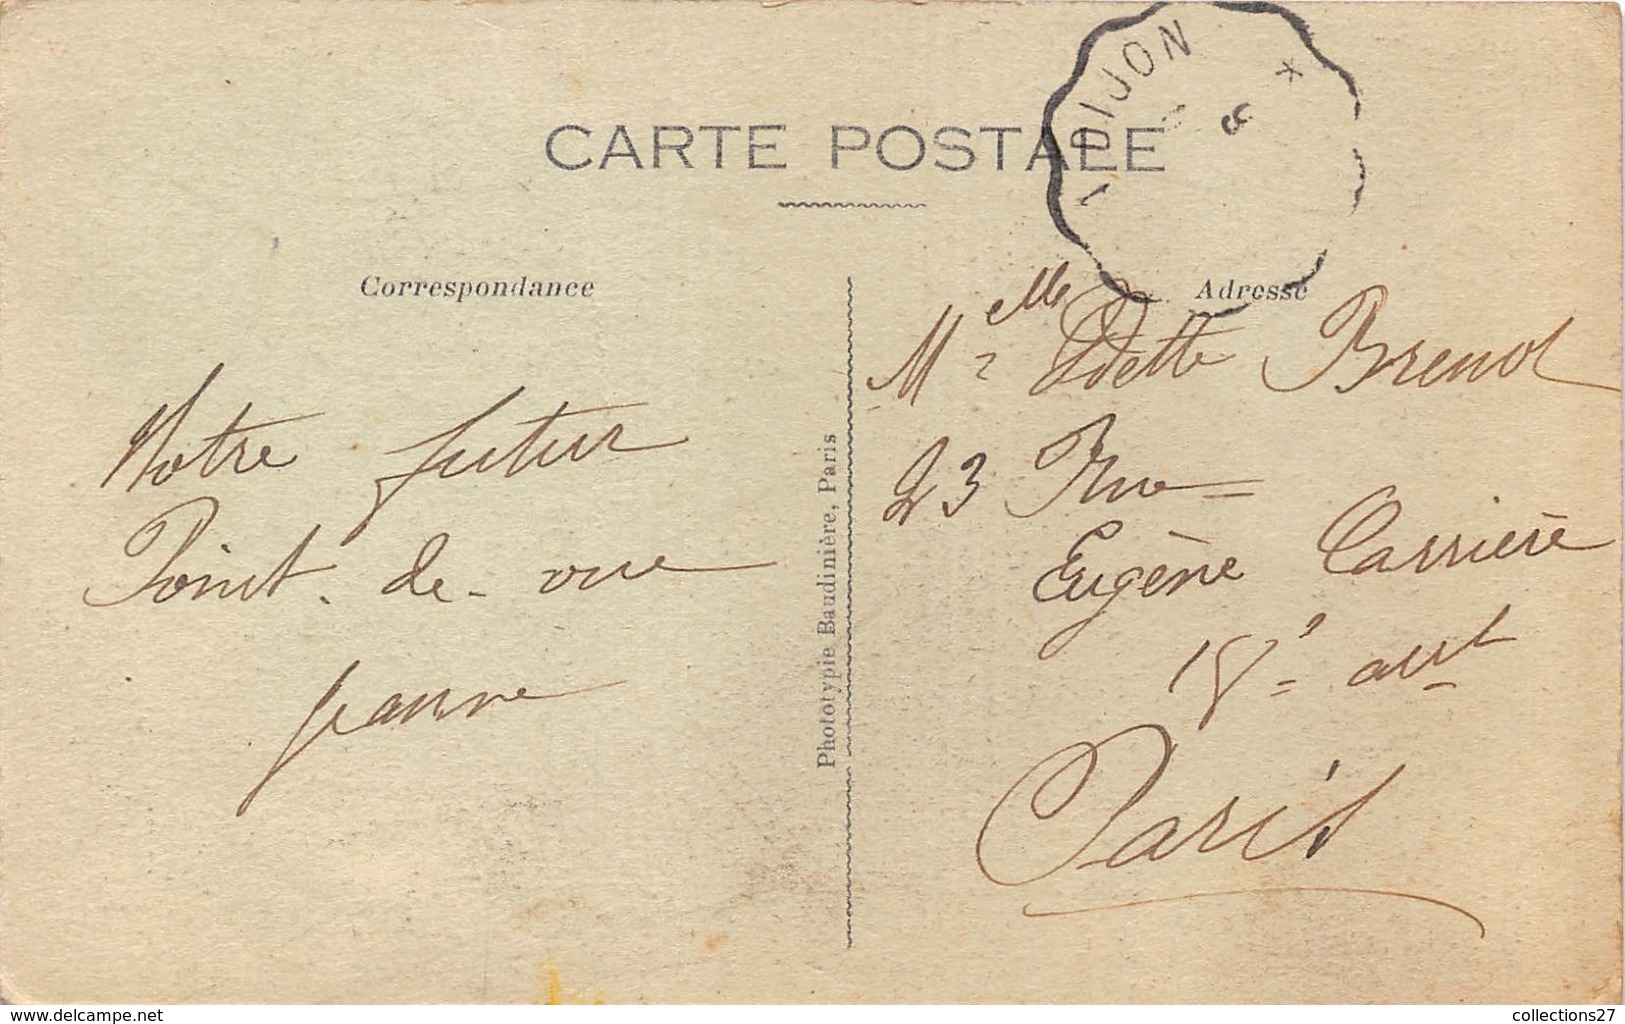 CARTE POSTALE
DIJON
Correspondance
Adresse
Notre futur
Point-de-vue
Jeanne
Photolypie Baudinière, Paris
Melle Odette Brenot
23 Rue
Eugène Carrière
18e arrt
Paris
www.delcampe.net
collections27